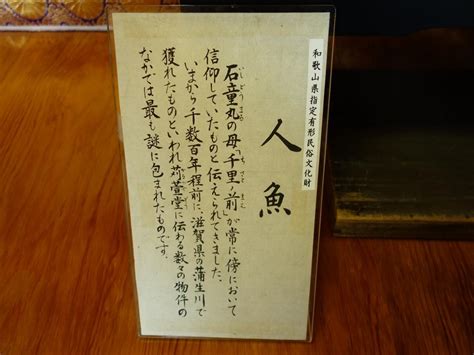 和歌山県指定有形民俗文化財
人魚
石童丸の母「千里ノ前」が常に傍において
信仰していたものと伝えられてきました。
いまから千数百年程前に、滋賀県の蒲生川で
獲れたものといわれ苅萱堂に伝わる数々の物件の
なかでは最も謎に包まれたものです。